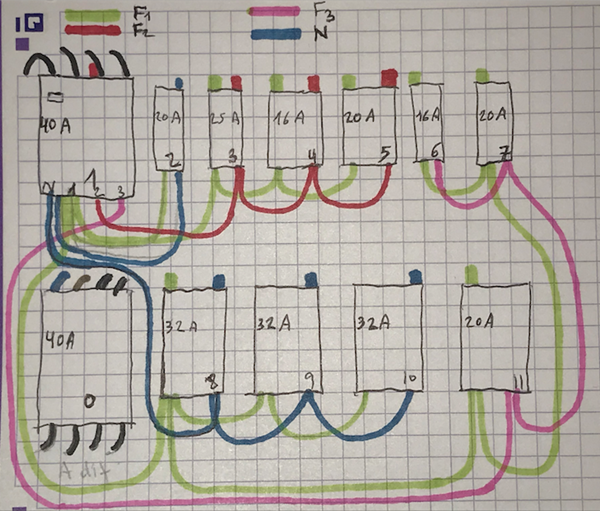 IQ F1 F3
F2 N
40A 20A 25A 16A 20A 16A 20A
N 1 1 2 3 2 3 4 5 6 7
40A 32A 32A 32A 20A
0 8 9 10 11
A dif